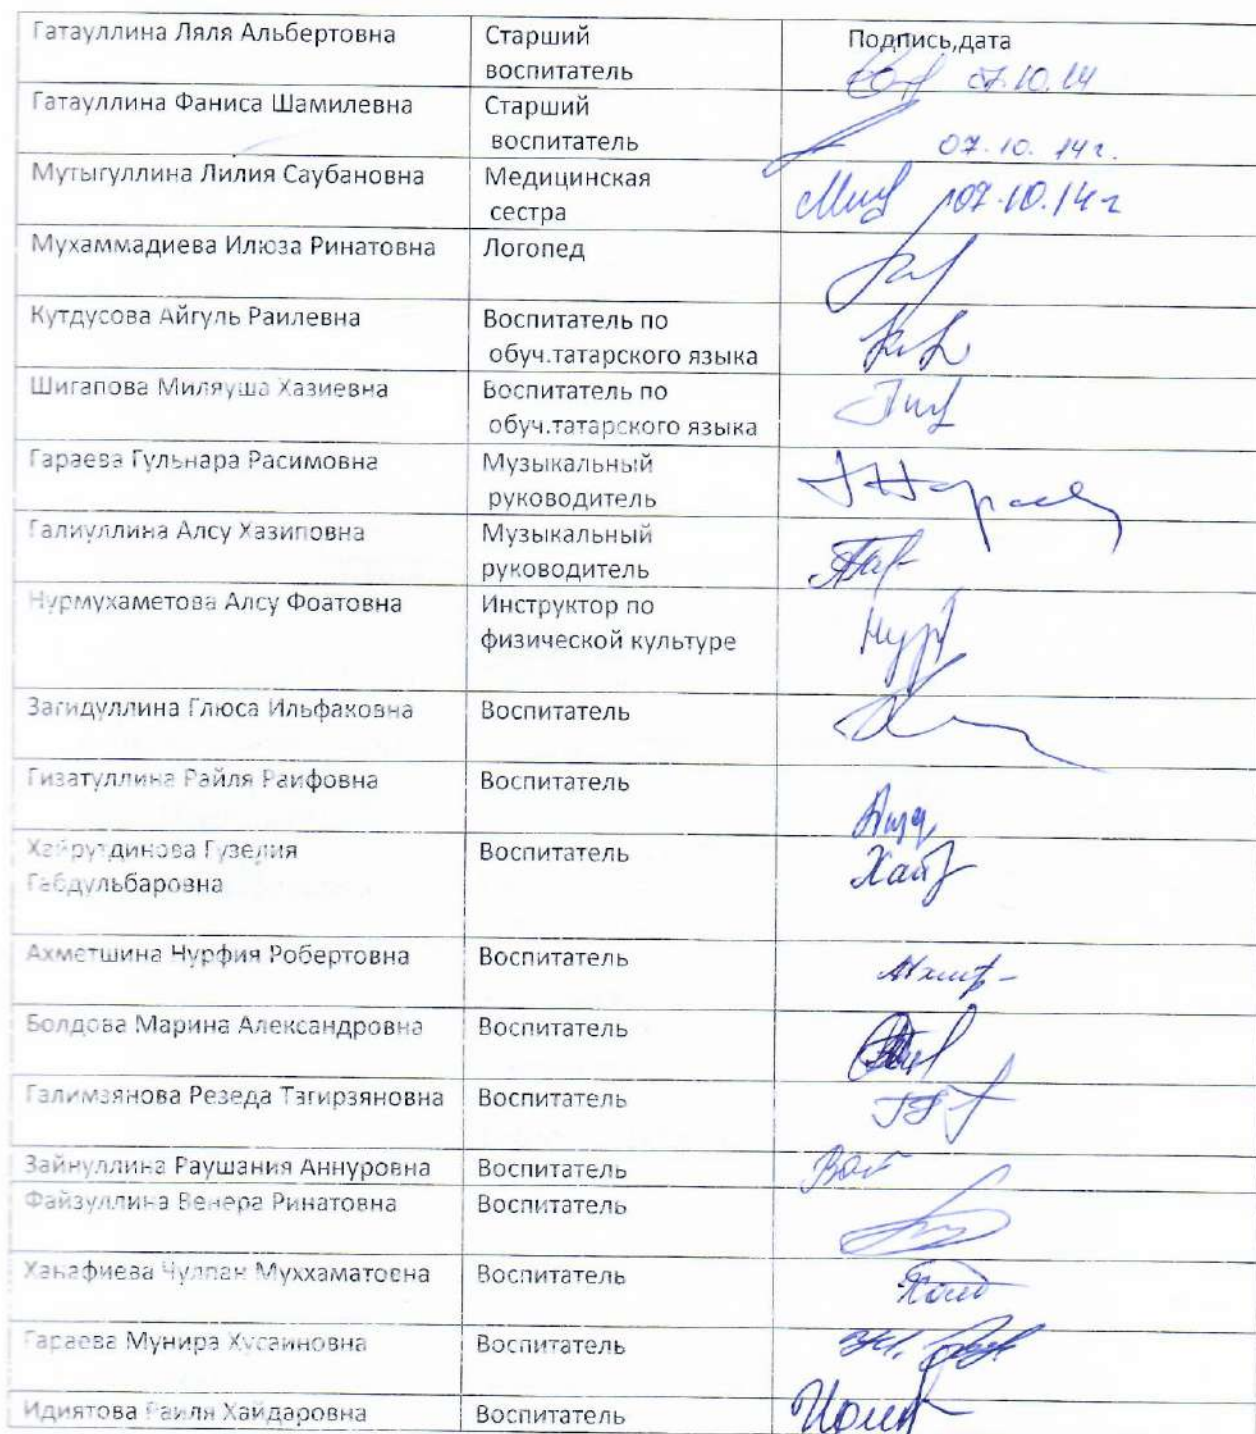 Гатауллина Ляля Альбертовна Старший Подпись,дата
воспитатель 07.10.14
Гатауллина Фаниса Шамилевна Старший
воспитатель 07.10.14г.
Мутыгуллина Лилия Саубановна Медицинская
сестра 07.10.14г
Мухаммадиева Илюза Ринатовна Логопед
Кутдусова Айгуль Раилевна Воспитатель по
обуч.татарского языка
Шигапова Миляуша Хазиевна Воспитатель по
обуч.татарского языка
Гараева Гульнара Расимовна Музыкальный
руководитель
Галиуллина Алсу Хазиповна Музыкальный
руководитель
Нурмухаметова Алсу Фоатовна Инструктор по
физической культуре
Загидуллина Глюса Ильфаковна Воспитатель
Гизатуллина Райля Раифовна Воспитатель
Хайрутдинова Гузелия Воспитатель
Габдульбаровна
Ахметшина Нурфия Робертовна Воспитатель
Болдова Марина Александровна Воспитатель
Галимзянова Резеда Тагирзяновна Воспитатель
Зайнуллина Раушания Аннуровна Воспитатель
Файзуллина Венера Ринатовна Воспитатель
Ханафиева Чулпан Муххаматовна Воспитатель
Гараева Мунира Хусаиновна Воспитатель
Идиятова Раиля Хайдаровна Воспитатель